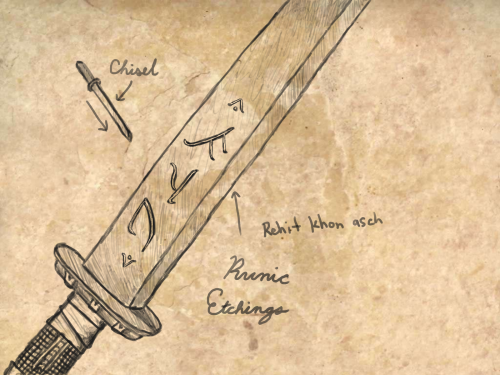 Chisel
Rehit khon asch
Runic
Etchings